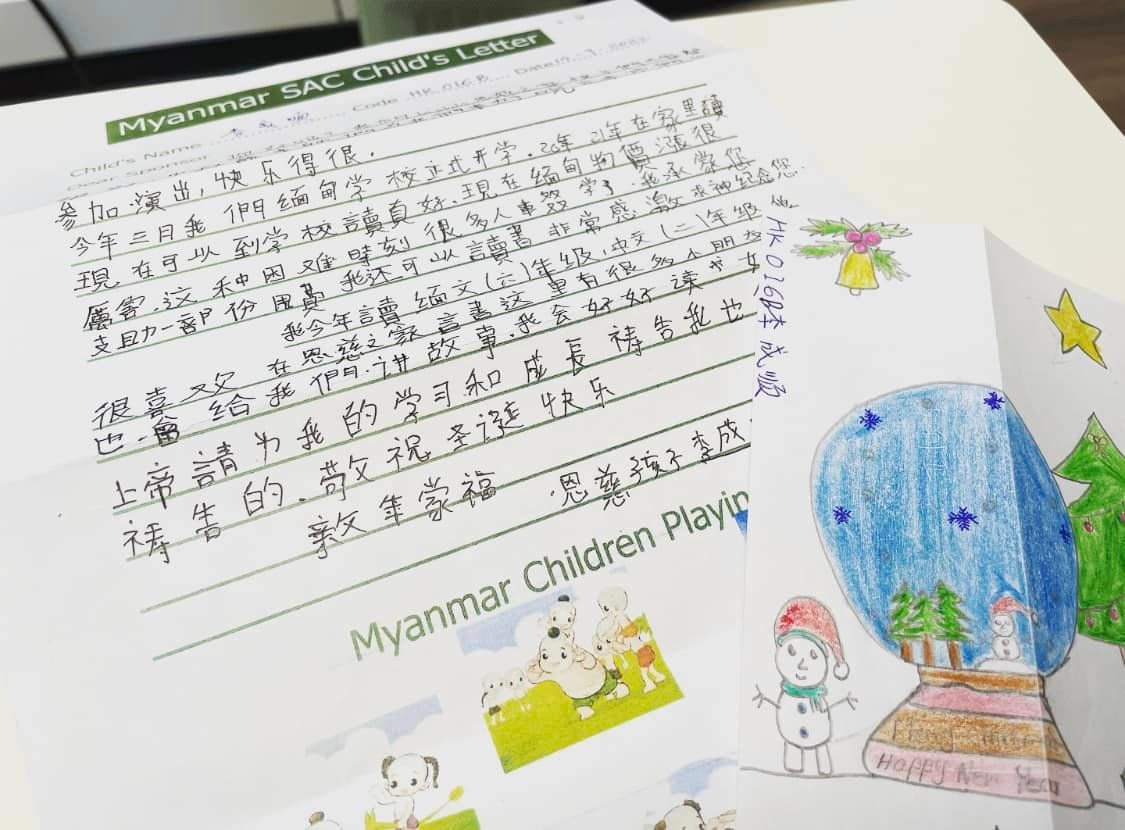 Myanmar SAC Child's Letter
Child's Name Code HK 016B Date
Dear Sponsor
参加演出,快乐得很.
今年三月我們緬甸学校正式开学.20年21年在家里讀
現在可以到学校讀真好.現在緬甸物價漲很
厲害.这种困难時刻很多人 学了.我承蒙您
支助一部份用費我还可以讀書非常感激 神紀念您.
我今年讀緬文(六)年级,中文(二)年级
很喜欢在恩慈之家 書这里有很多小朋友
也會給我們讲故事.我会好好读书
上帝請为我的学习和成長祷告我也
祷告的.敬祝圣誕快乐
年蒙福 恩慈孩子李成
Myanmar Children Playin
HK016B李成顺
Happy New Year